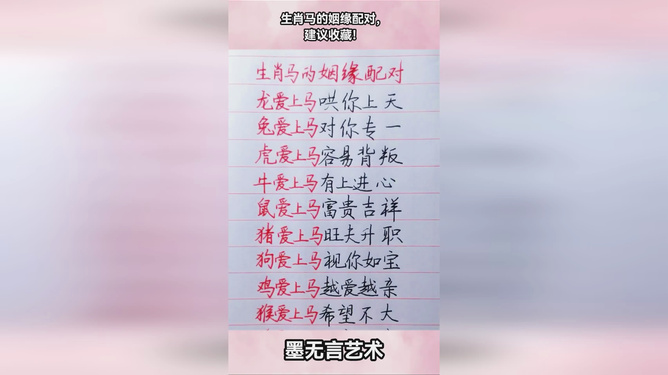 生肖马的姻缘配对，
建议收藏！
生肖马的姻缘配对
龙爱上马哄你上天
兔爱上马对你专一
虎爱上马容易背叛
牛爱上马有上进心
鼠爱上马富贵吉祥
猪爱上马旺夫升职
狗爱上马视你如宝
鸡爱上马越爱越亲
猴爱上马希望不大
墨无言艺术